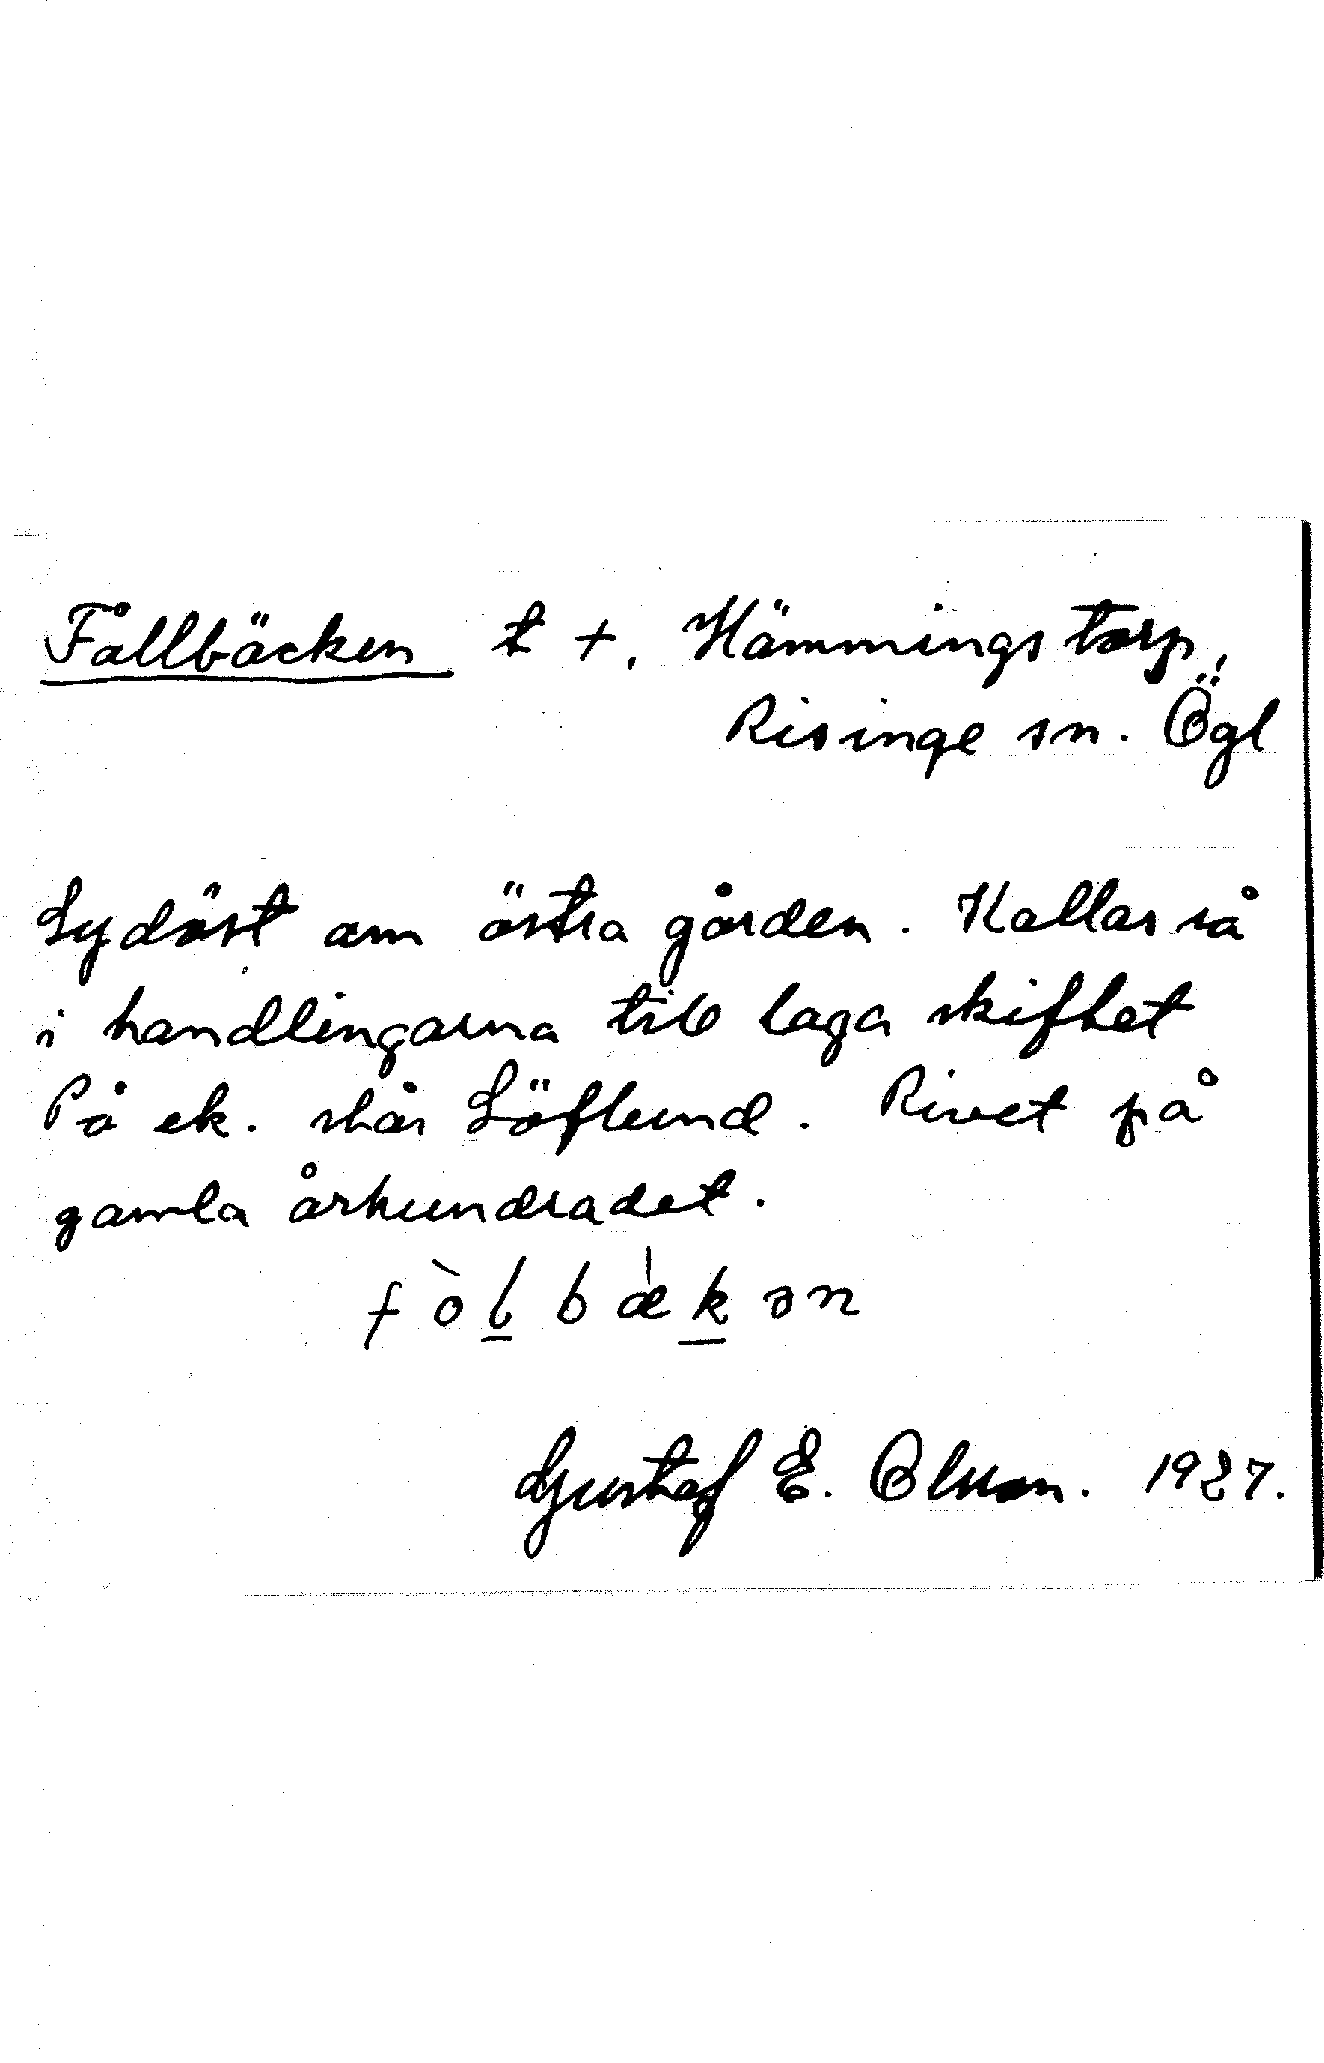 Fållbäcken t +. Hämmingstorp,
Risinge sn. Ögl
Sydöst om östra gården. Kallas så
i handlingarna till laga skiftet
På ek. står Löflund. Rivet på
gamla århundradet.
fòlbækən
Gustaf E. Olsson. 1927.